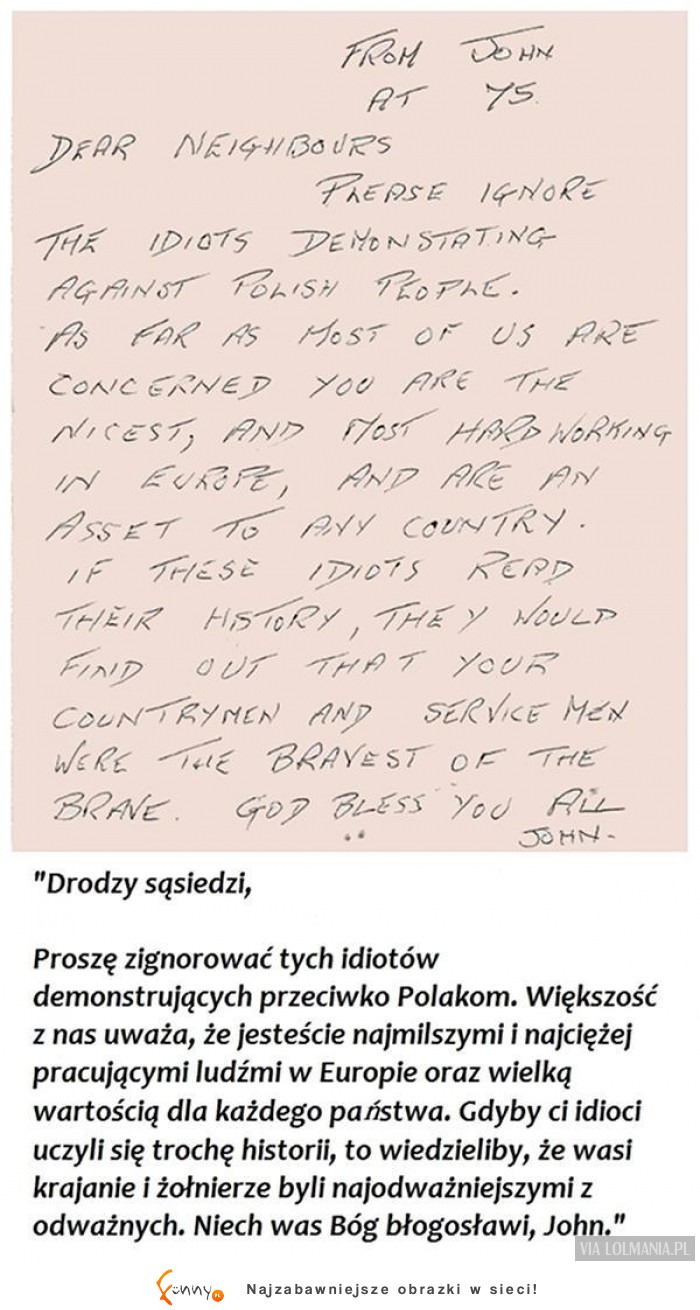 FROM JOHN
AT 75.
DEAR NEIGHBOURS
PLEASE IGNORE
THE IDIOTS DEMONSTATING
AGAINST POLISH PEOPLE.
AS FAR AS MOST OF US ARE
CONCERNED YOU ARE THE
NICEST, AND MOST HARD WORKING
IN EUROPE, AND ARE AN
ASSET TO ANY COUNTRY.
IF THESE IDIOTS READ
THEIR HISTORY, THEY WOULD
FIND OUT THAT YOUR
COUNTRYMEN AND SERVICE MEN
WERE THE BRAVEST OF THE
BRAVE. GOD BLESS YOU ALL
JOHN-
"Drodzy sąsiedzi,
Proszę zignorować tych idiotów
demonstrujących przeciwko Polakom. Większość
z nas uważa, że jesteście najmilszymi i najciężej
pracującymi ludźmi w Europie oraz wielką
wartością dla każdego państwa. Gdyby ci idioci
uczyli się trochę historii, to wiedzieliby, że wasi
krajanie i żołnierze byli najodważniejszymi z
odważnych. Niech was Bóg błogosławi, John."
VIA LOLMANIA.PL
funny.PL Najzabawniejsze obrazki w sieci!